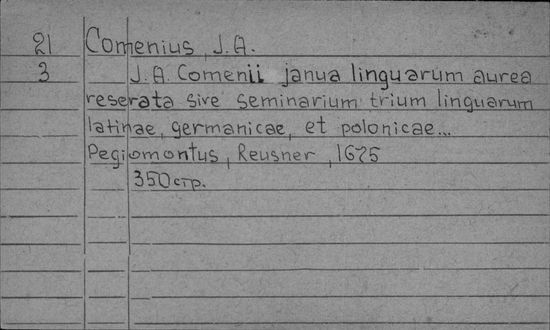 21 Comenius, J.A.
3 J.A. Comenii janua linguarum aurea
reserata sive seminarium trium linguarum
latinae, germanicae, et polonicae...
Pegiomontus, Reusner, 1675
350стр.